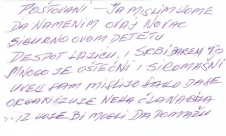 POŠTOVANI — JA MISLIM KOME
DA NAMENIM OVAJ NOVAC
SIGURNO OVOM DETETU
DESPOT LAZIĆU, I SRBI BAREM
MNOGO JE OŠTEĆENI I SIROMAŠNI
UVEK SAM MISLIO KAKO DA SE
ORGANIZUJE NEKA ČLANARINA
IZ KOJE BI MOGLI DA POMAŽU